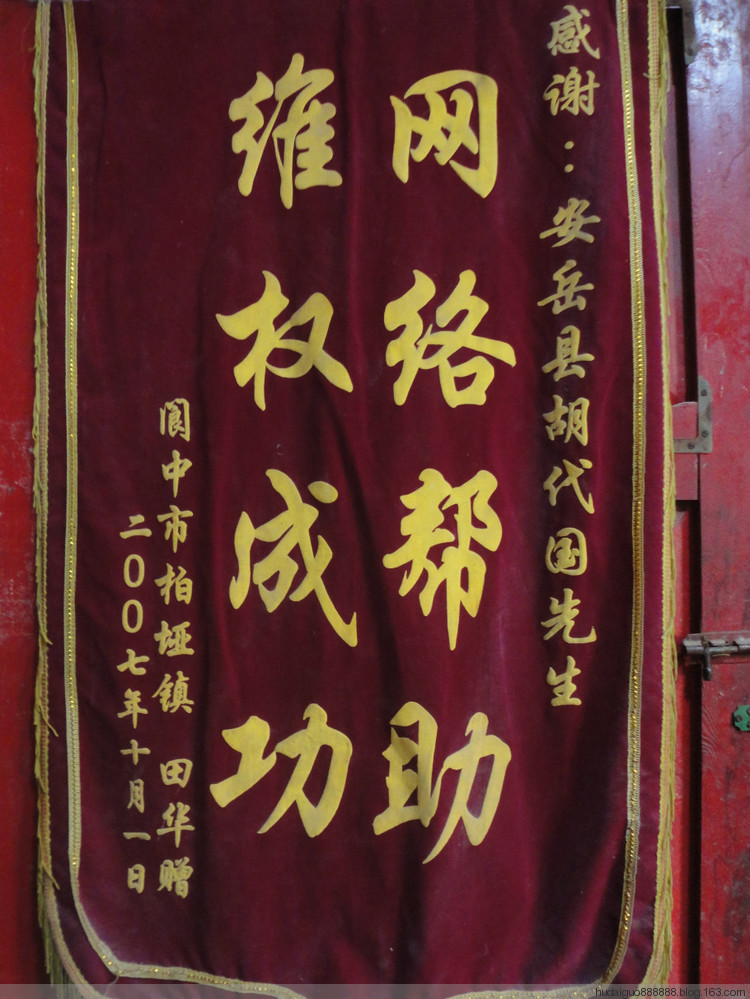 感谢：安岳县胡代国先生
网络帮助
维权成功
阆中市柏垭镇 田华赠
二〇〇七年十月一日
hudaiguo888888.blog.163.com